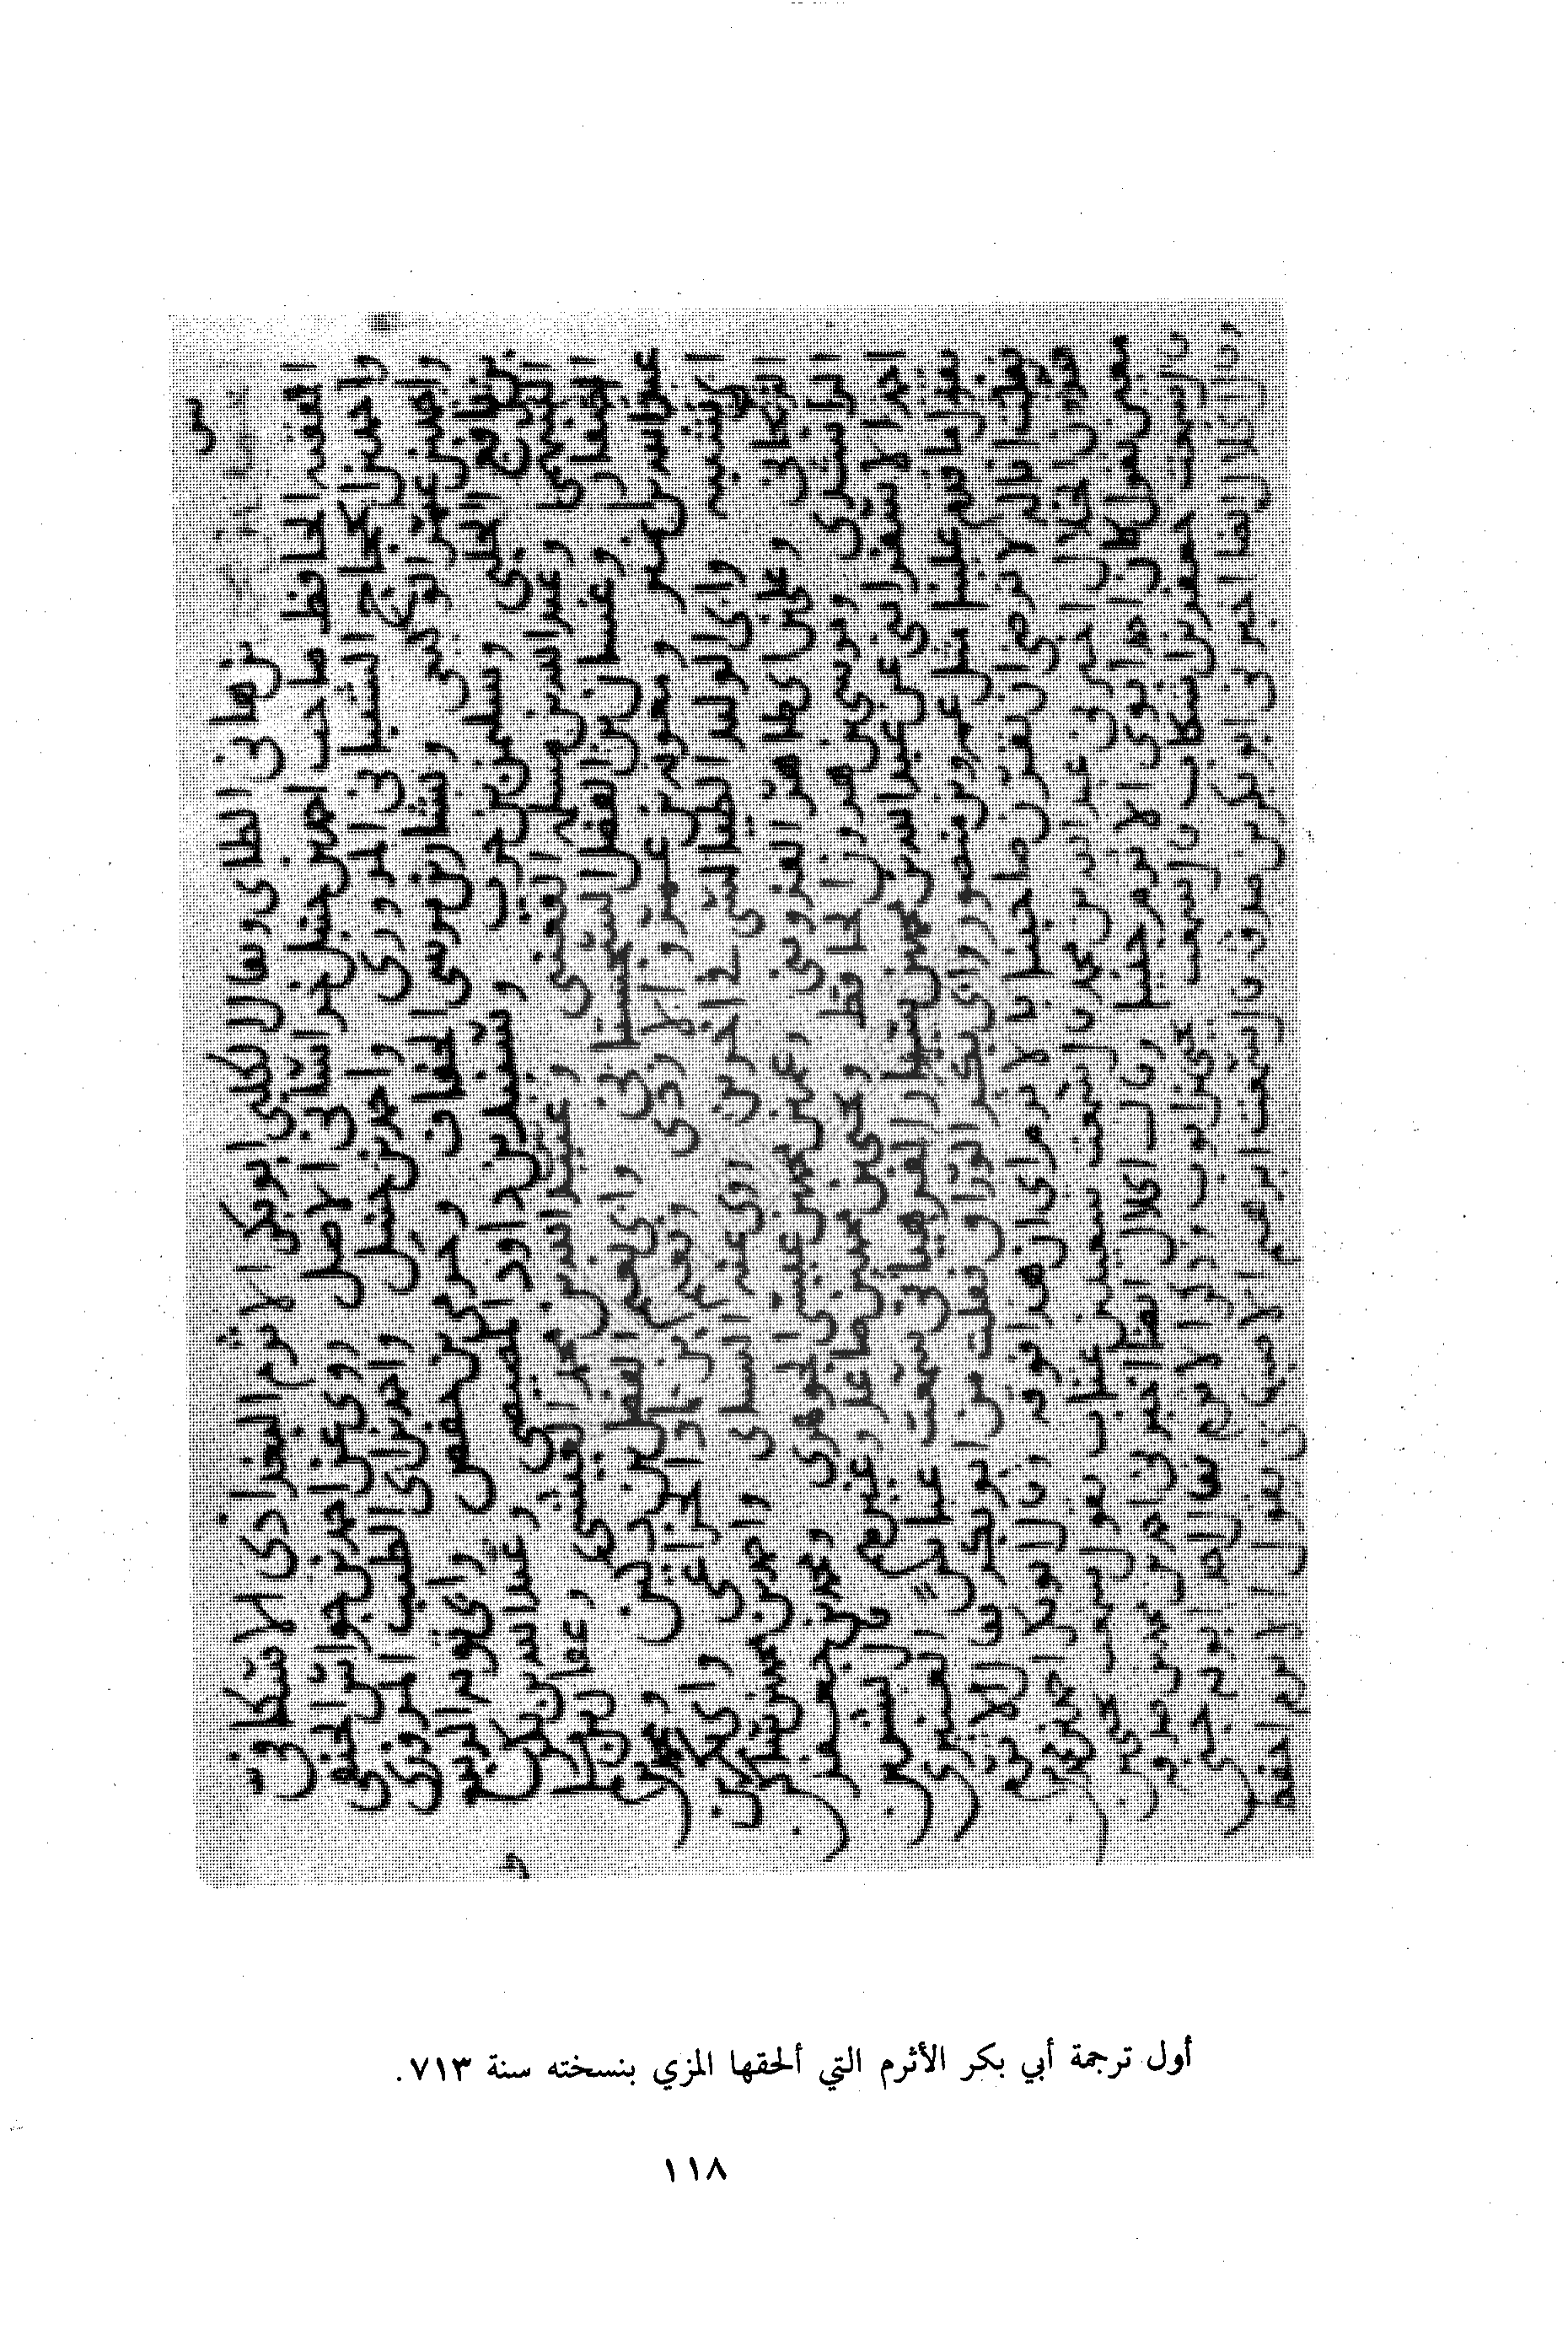 س
بن هانى الطاى ويقال الكلبى ابو بكر الاثرم البغدادى الاسكافى
الفقيه الحافظ صاحب احمد بن حنبل خراسانى الاصل روى عن احمد بن جواس الحنفى
واحمد بن الحجاج الشيبانى المروزى واحمد بن حنبل واحمد بن ابى الطيب المروزى
واحمد بن عمر الوكيعى وبشار بن موسى الخفاف وحرمى بن حفص وابى توبه الربيع
بن نافع الحلبى وسليمن بن حرب وسنيد بن داود المصيصى وعبد الله بن بكر
السهمى وعبد الله بن مسلمه القعنبى وعبيد الله بن محمد العيشى وعفان بن
الصفار وغسان بن الفضل السجستانى وابى نعيم الفضل بن دكين
ومعويه بن عمرو الازدى ونعيم بن حماد الخزاعى وابى بكر
شيبه وابى الوليد الطيالسى فى اخرين روى عنه النساى واحمد بن محمد بن شاكر
وعلى بن ابى طاهر القزوينى وعمر بن محمد بن عيسى الجوهرى ومحمد بن جعفر
الراشدى وموسى بن هرون الحافظ ويحيى بن محمد بن صاعد وغيرهم
عن عبد الله بن محمد بن سيار الفرهيانى سمعت عباس العنبرى
يقول ما قدم علينا مثل عمرو بن منصور وابى بكر الوراق فقلت من ابو بكر قال الاثرم
فقلت انا له لا ترضى ان تقرن صاحبنا بالاثرم اى ان هذا فوقه وقال ابو بكر احمد بن محمد
بن هرون الخلال اخبرنى عبد الله بن محمد قال سمعت سعيد بن عتاب يقول سمعت يحيى بن
معين يقول كان احد ابوى الاثرم جنيا وقال الخلال ايضا اخبرنى احمد بن محمد بن صدقه
قال سمعت جعفر بن اشكاب قال سمعت يحيى بن ايوب وذكر الاثرم فقال احد ابويه جنى
وقال الخلال ايضا اخبرنى ابو بكر بن صدقه قال سمعت ابرهيم الاصبهانى يقول الاثرم احفظ
أول ترجمة أبي بكر الأثرم التي ألحقها المزي بنسخته سنة ٧١٣.
١١٨